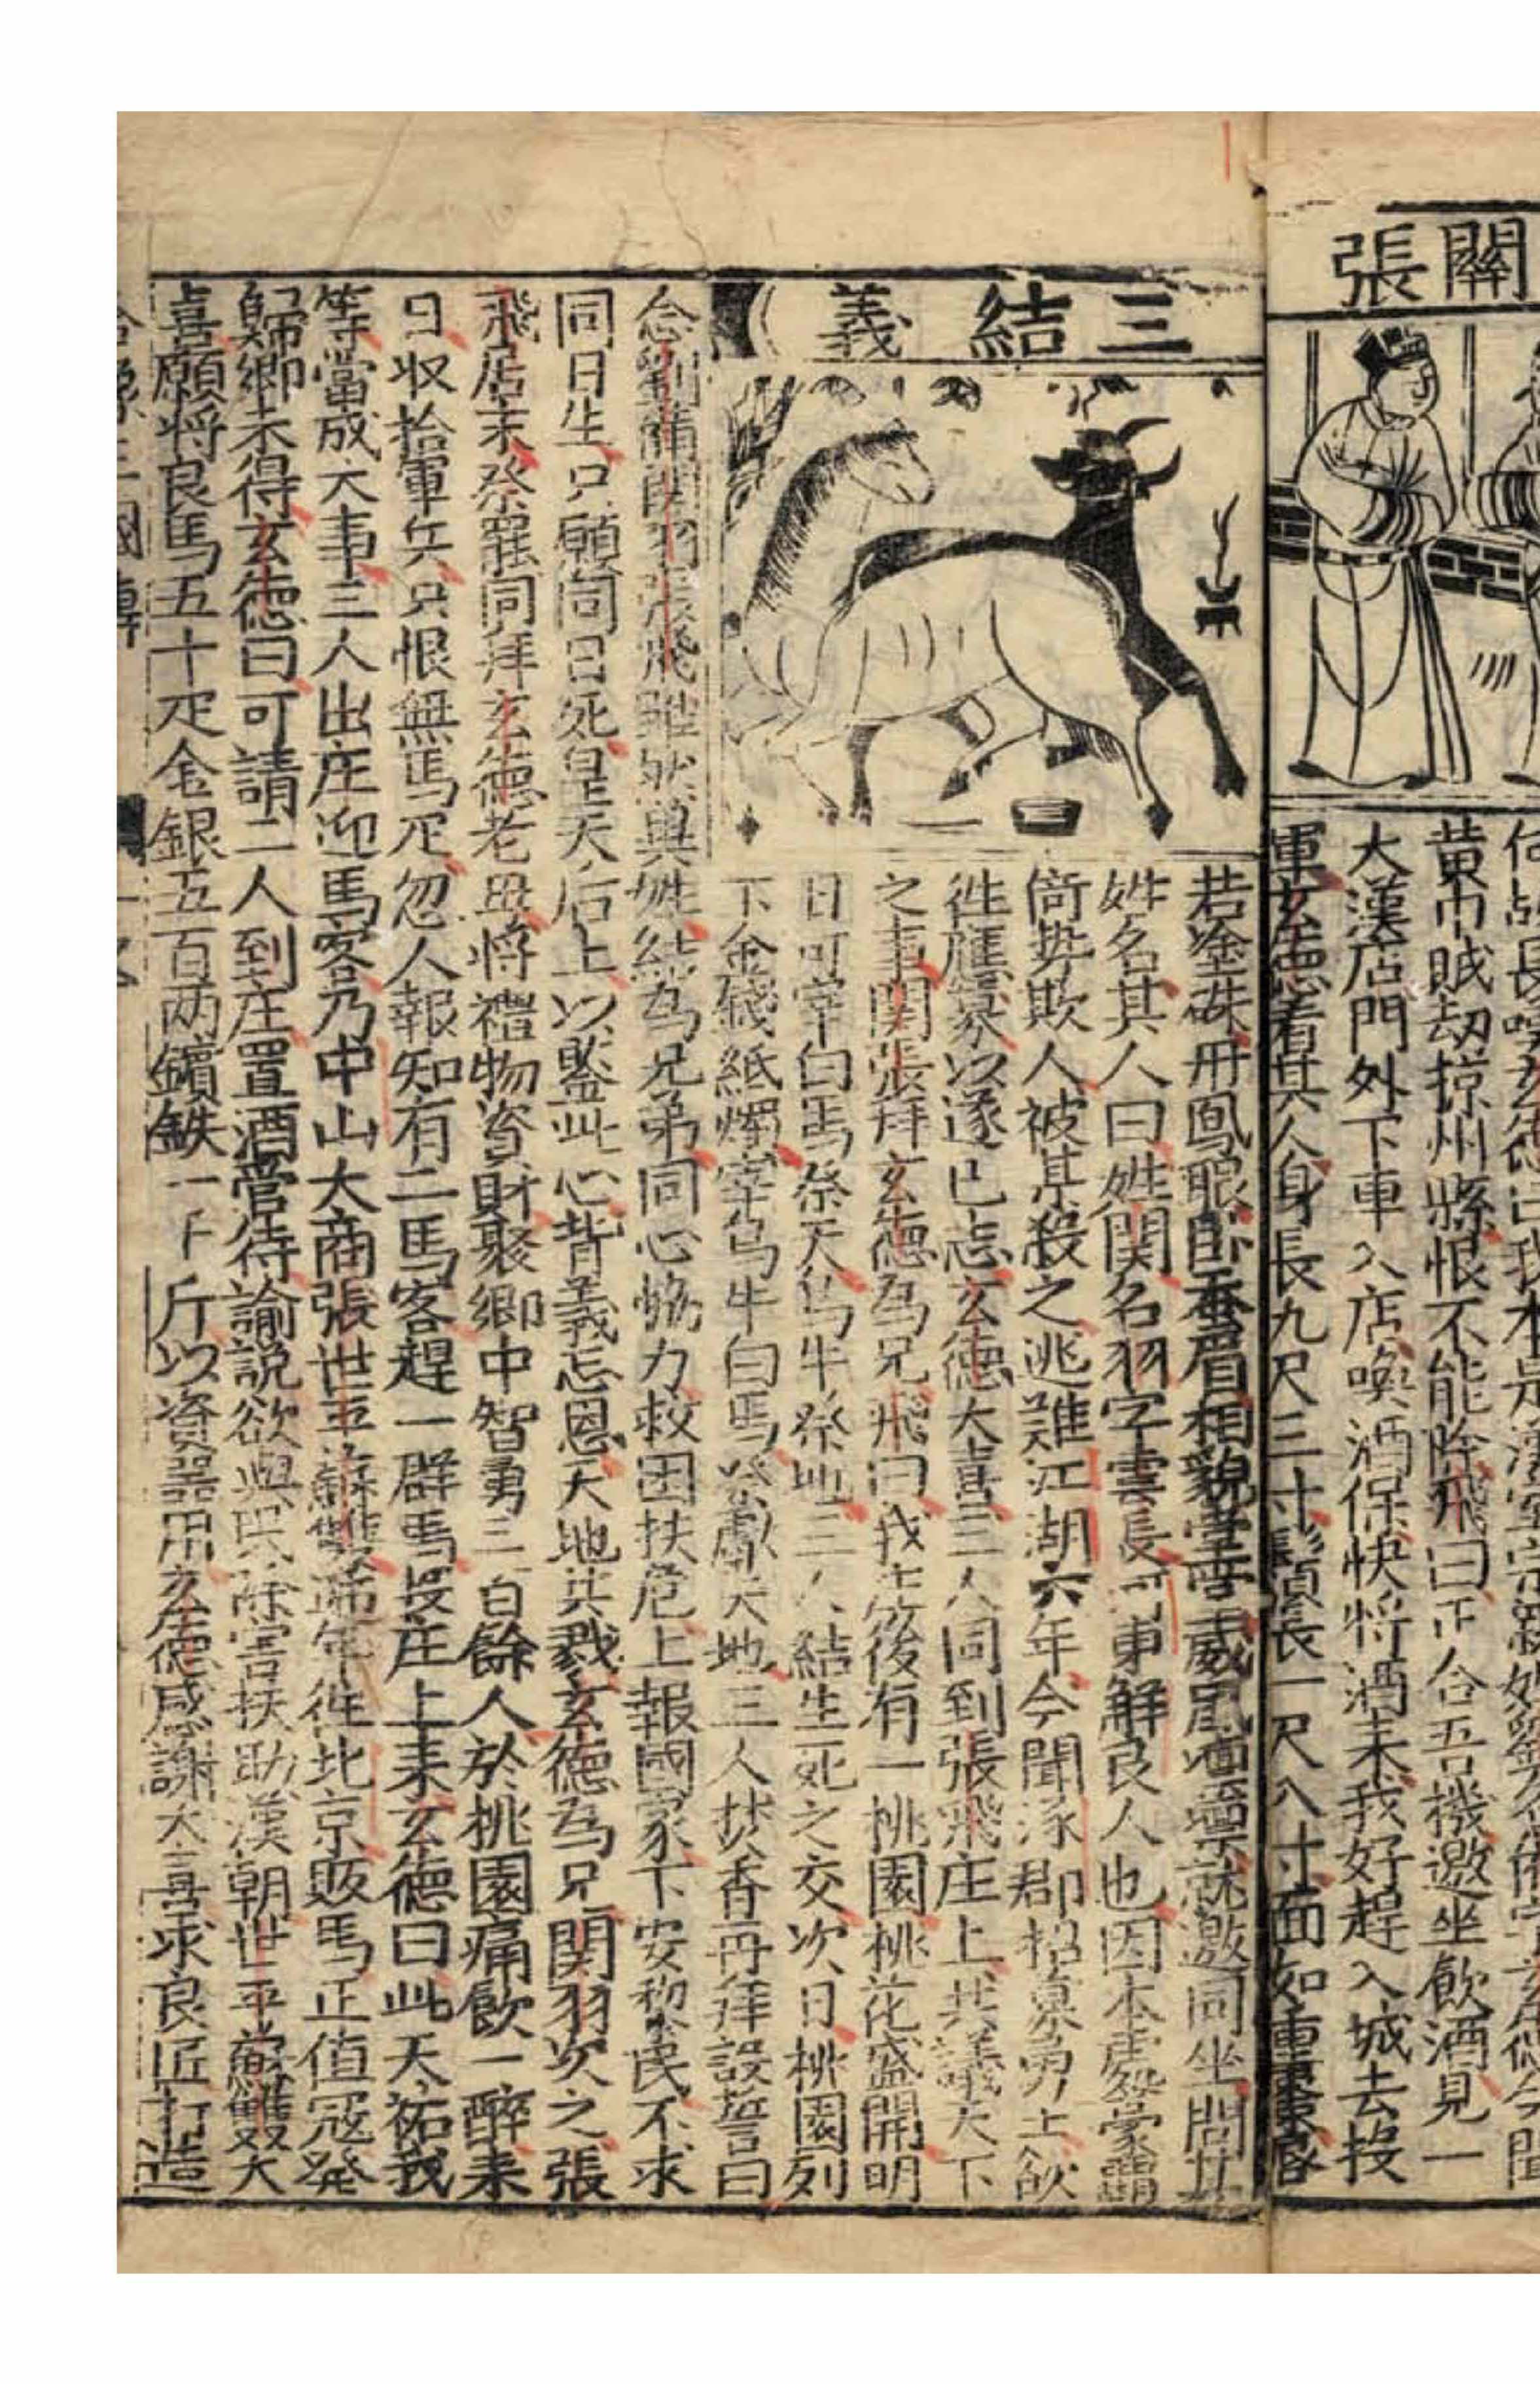 關張
何故長嘆玄德
黃巾賊刼掠州縣恨不能除飛曰正合吾機邀坐飲酒見一
大漢店門外下車入店喚酒保快將酒來我好趕入城去投
軍玄德看其人身長九尺三寸鬚長一尺八寸面如重棗唇
三結義
若塗硃丹鳳眼卧蚕眉相貌堂堂威風凜凜就邀同坐問其
姓名其人曰姓関名羽字雲長河東解良人也因本處豪覇
倚势欺人被某殺之逃难江湖六年今聞涿郡招募勇士欲
徃應募以遂已志玄德大喜三人同到張飛庄上共議天下
之事関張拜玄德為兄飛曰我庄後有一桃園桃花盛開明
日可宰白馬祭天烏牛祭地三人結生死之交次日桃園列
下金錢紙燭宰烏牛白馬祭獻天地三人焚香再拜設誓曰
念劉備関羽張飛雖然異姓結為兄弟同心恊力救困扶危上報國家下安黎民不求
同日生只願同日死皇天后土以鑒此心背義忘恩天地共戮玄德為兄関羽次之張
飛居末祭罷同拜玄德老母將禮物資財聚鄉中智勇三百餘人於桃園痛飲一醉来
日収拾軍兵只恨無馬疋忽人報知有二馬客趕一群馬投庄上来玄德曰此天祐我
等當成大事三人出庄迎馬客乃中山大商張世平蘇雙常年徃北京販馬正值冦發
歸鄉未得玄德曰可請二人到庄置酒管待諭說欲與民除害扶助漢朝世平蘇雙大
喜願將良馬五十疋金銀五百两鑌鉄一千斤以資器用玄德感謝大喜求良匠打造